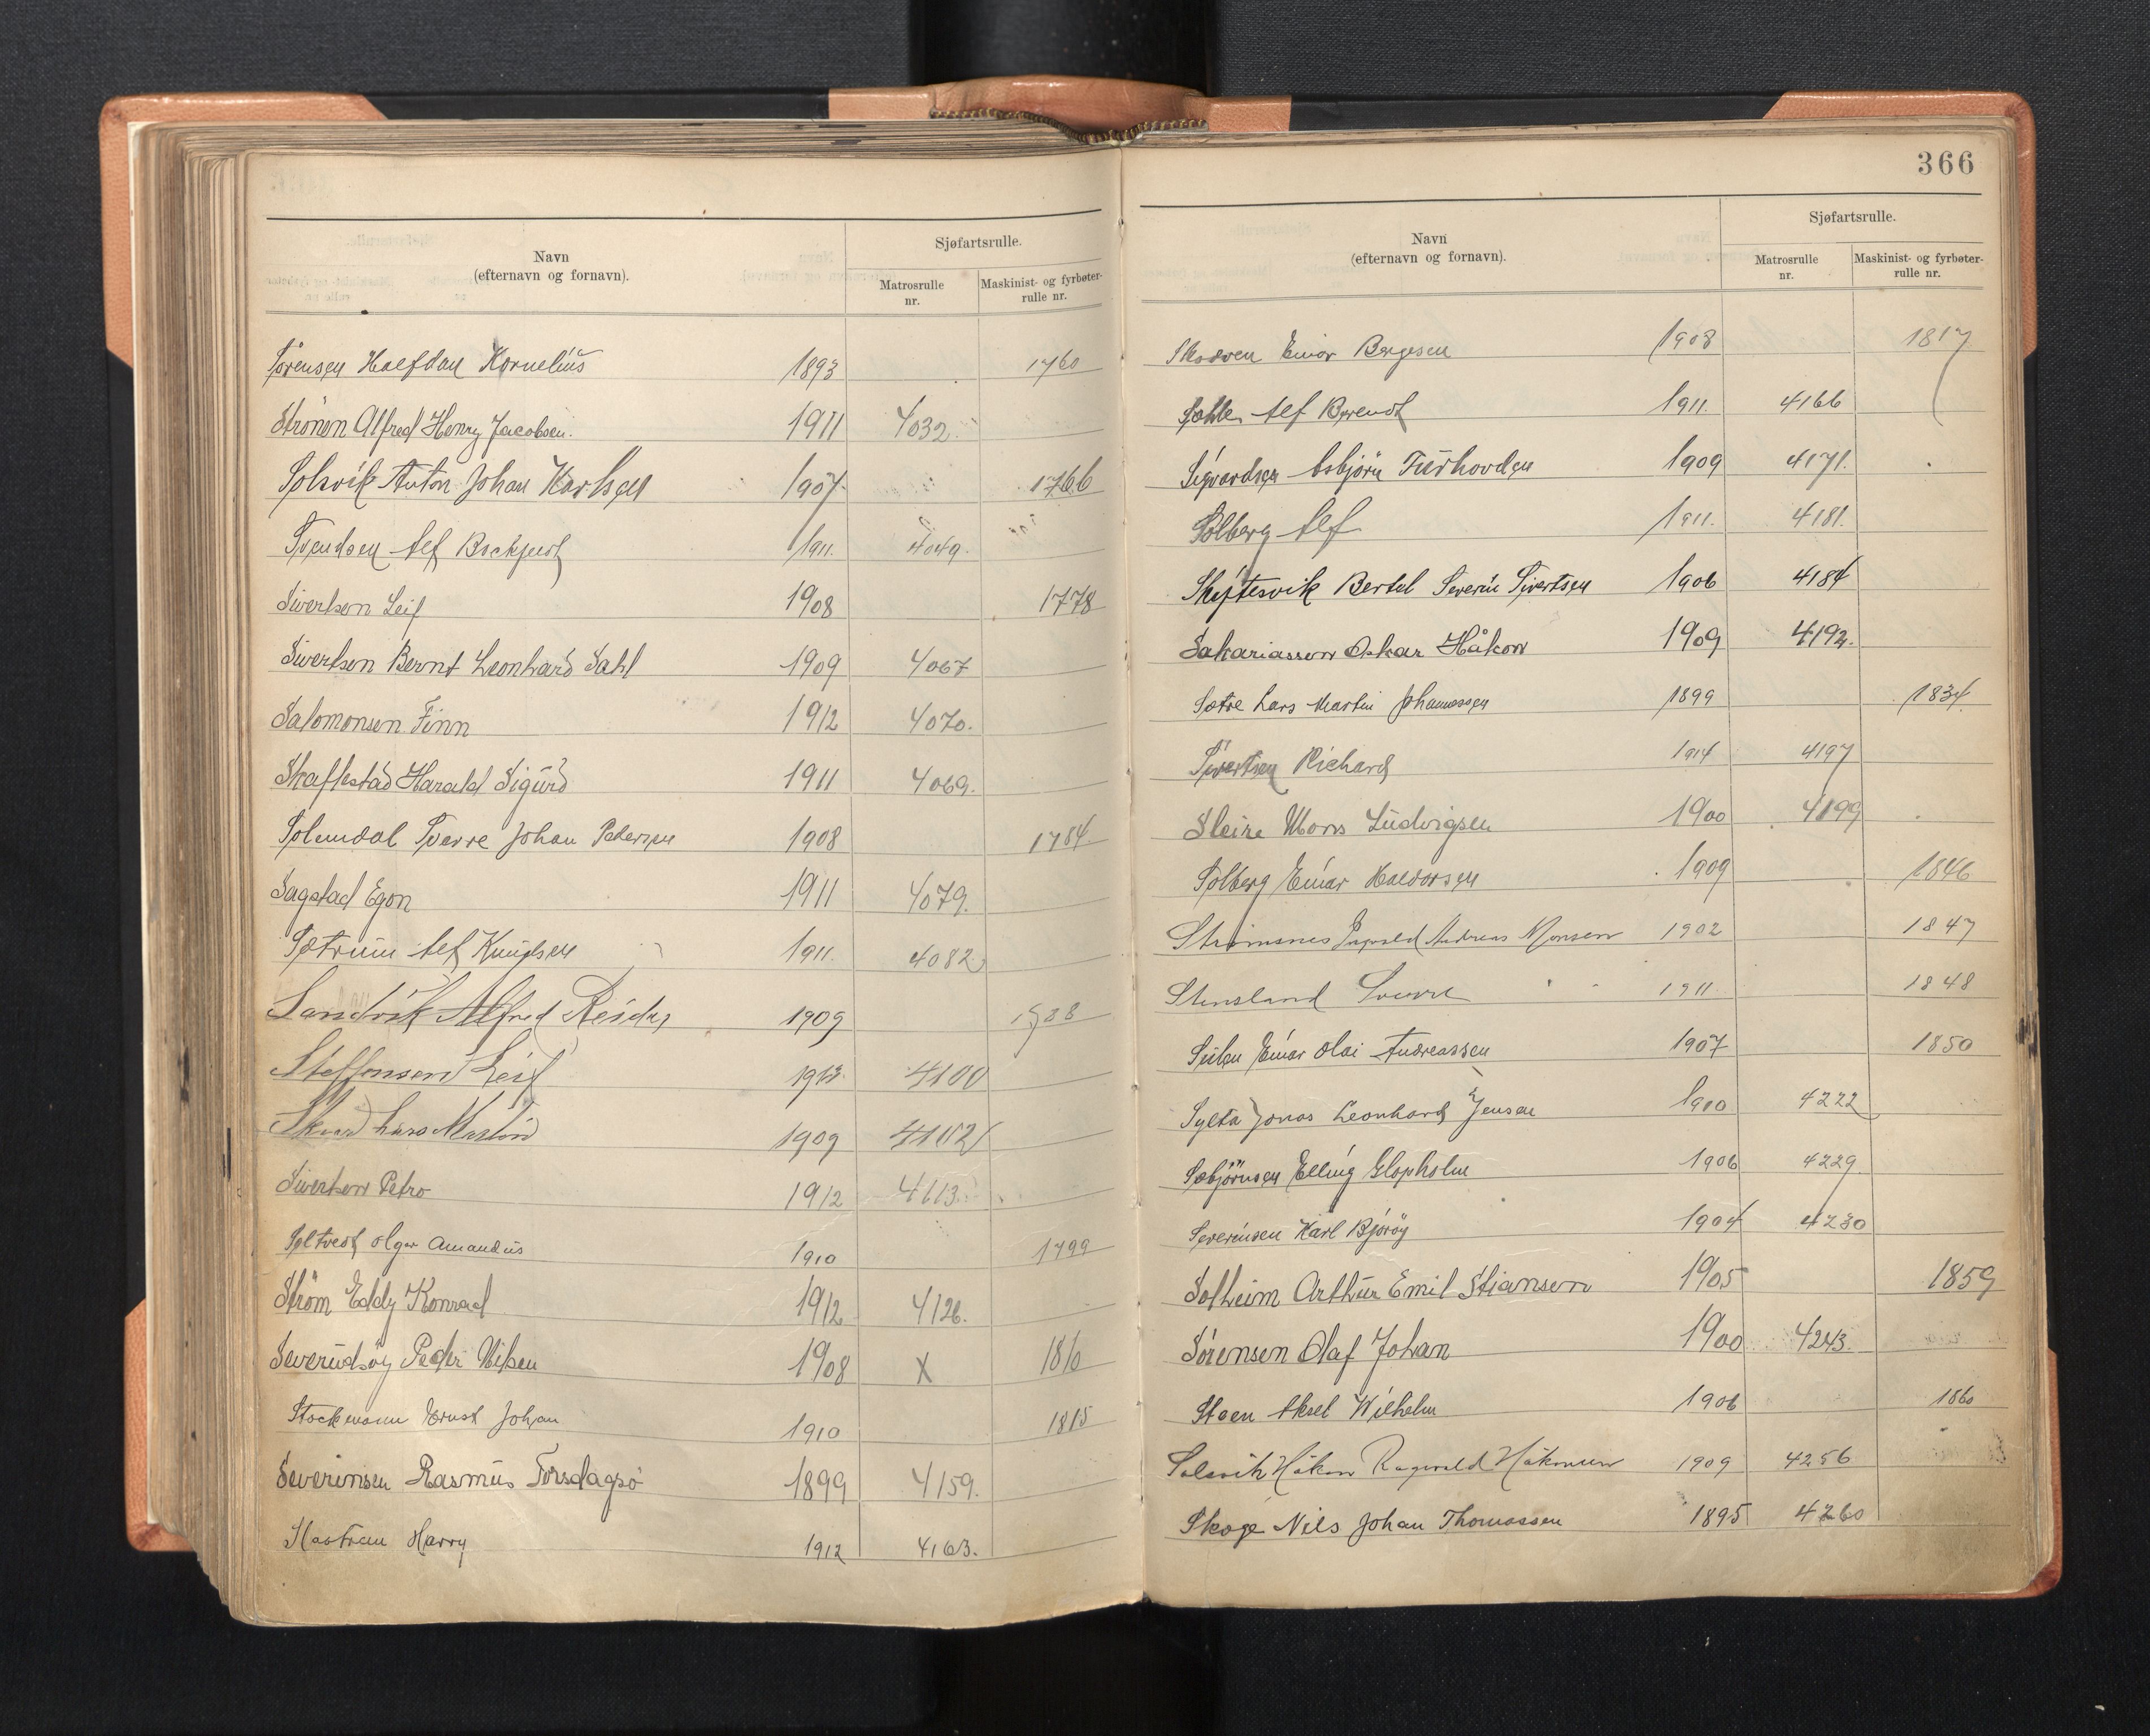 Navn
(efternavn og fornavn).
Sjøfartsrulle.
Matrosrulle
nr.
Maskinist- og fyrbøter-
rulle nr.
Sörensen Halfdan Kornelius 1893 1760
Strönen Alfred Henry Jacobsen. 1911 4032.
Solsvik Anton Johan Karlsen 1907. 1766
Svendsen Alf 1911. 4049.
Sivertsen Leif 1908 1778
Sivertsen Bernt Leonhard Dahl 1909 4067
Salomonsen Finn 1912 4070.
Skaflestad Harald Sigurd 1911 4069.
Solemdal Sverre Johan Pedersen 1908 1784.
Sagstad Egon 1911 4079.
Sætrum Alf Knudsen 1911. 4082
Sandvik Alfred Reidar 1909
Steffensen Leif 4100
Lars Martin 1909 4102
Sivertsen Petro 1912 4113.
Soltvedt Olger Amandus 1910 1799
Ström Eddy Konrad 1912 4126.
Severudsöy Peder Nilsen 1908 X 1810
Stockmann Ernst Johan 1910 1815
Severinsen Rasmus Torsdagsö 1899 4159.
Harry 1912 4163.
366
Navn
(efternavn og fornavn).
Sjøfartsrulle.
Matrosrulle
nr.
Maskinist- og fyrbøter-
rulle nr.
Einar Bergesen 1908 1817
Alf Berendt 1911. 4166
Sigvardsen Asbjörn Turhovden 1909 4171.
Solberg Alf 1911. 4181.
Skeftesvik Bertel Severin Sivertsen 1906 4184
Sakariassen Oskar Håkon 1909 4192.
Sætre Lars Martin Johannessen 1899 1834.
Sivertsen Richard 1914 4197
Sleire Mons Ludvigsen 1900 4199
Solberg Einar Haldorsen 1909 1846
Strömsnes Ingvald Andreas Monsen 1902 1847
Stensland Sverre 1911. 1848
Einar Olai Andreassen 1907 1850
Sylta Jonas Leonhard Jensen 1910 4222
Sæbjörnsen Elling Glopholm 1906 4229
Severinsen Karl Björöy 1904 4230
Solheim Arthur Emil Stiansen 1905 1859
Sörensen Olaf Johan 1900 4243.
Steen Aksel Wilhelm 1906 1860
Solsvik Håkon Ragnvald Håkonsen 1909 4256
Skoge Nils Johan Thomassen 1895 4260